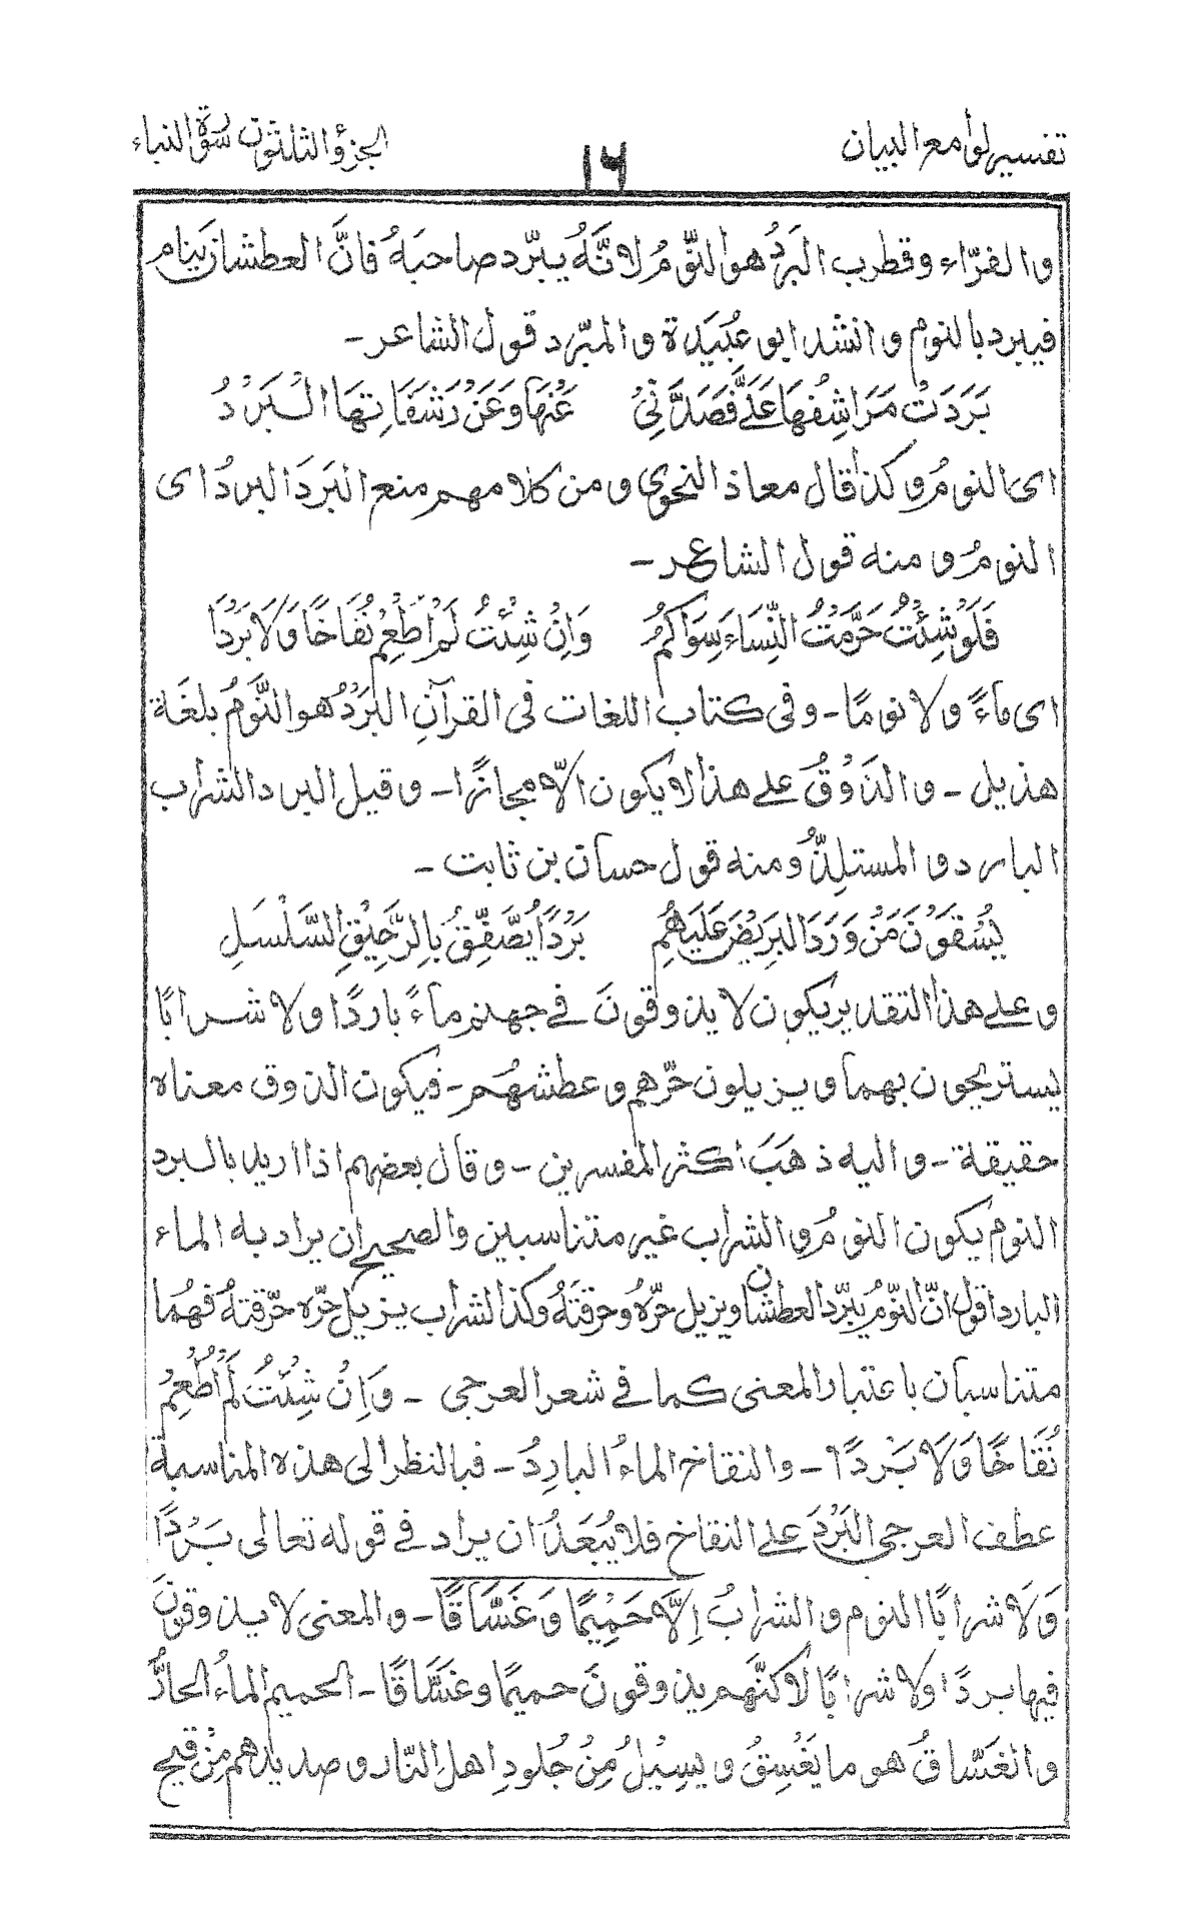 تفسير لوامع البيان
١٦
الجزؤ الثلثون سورة النباء
والفرّاء وقطرب البَردُ هو النّومُ لانّهُ يبرّد صاحبَهُ فانَّ العطشان ينام
فيبرد بالنوم وانشد ابو عُبَيدة والمبرّد قول الشاعر -
بَرَدَتْ مَرَاشِفُهَا عَلَيَّ فَصَدَّنِيْ عَنْهَا وَعَنْ رَشَفَاتِهَا الْبَرْدُ
اى النومُ وكذا قال معاذ النحوي ومن كلامهم منع البَردَ البردُ اى
النومُ ومنه قول الشاعر -
فَلَوْ شِئْتُ حَرَّمْتُ النِّسَاءَ سِوَاكُمْ وَاِنْ شِئْتُ لَمْ اُطْعَمْ نُقَاخًا وَلَا بَرْدًا
اى ماءً ولا نومًا - وفى كتاب اللغات فى القرآنِ البَرْدُ هو النَّومُ بلغة
هذيل - والذَوْقُ على هذا لا يكون الّا مجازًا - وقيل البرد الشراب
البارد والمستلذُّ ومنه قول حسان بن ثابت -
يُسْقَوْنَ مَنْ وَرَدَ البَرِيْضَ عَلَيْهِمِ بَرْدًا يُصَفَّقُ بِالرَّحِيْقِ السَّلْسَلِ
وعلى هذا التقدير يكون لا يذوقونَ في جهنم ماءً باردًا ولا شرابًا
يستريحون بهما ويزيلون حرّهم وعطشهُم - فيكون الذوق معناه
حقيقة - واليه ذهَبَ اكثر المفسرين - وقال بعضهم اذا اريد بالبرد
النوم يكون النومُ والشراب غير متناسبين والصحيح ان يراد به الماء
البارد اقول انّ النّومُ يبرّد العطشان ويزيل حرّهُ وحرقتَهُ وكذا الشراب يزيل حرّه حرّقتهُ فهُما
متناسبان باعتبار المعنى كما في شعر العرجى - وَاِنْ شِئْتُ لَمْ اُطْعِمْ
نُقَاخًا وَلَا بَرْدًا - والنقاخ الماءُ البارِدُ - فبالنظر الى هذه المناسبة
عطف العرجى البَرْدَ على النقاخ فلا يُبْعَدُ ان يراد في قوله تعالى بَرْدًا
وَلَا شرابًا النوم والشرابُ اِلَّا حَمِيْمًا وَغَسَّاقًا - والمعنى لا يذوقونَ
فيها بردًا ولا شرابًا لاكنَّهم يذوقونَ حميمًا وغسَّاقًا - الحميم الماءُ الحارُّ
والغَسَّاقُ هو ما يَغْسِقُ ويسِيْلُ مِنْ جُلودِ اهل النّار وصديدهم مِنْ قيح